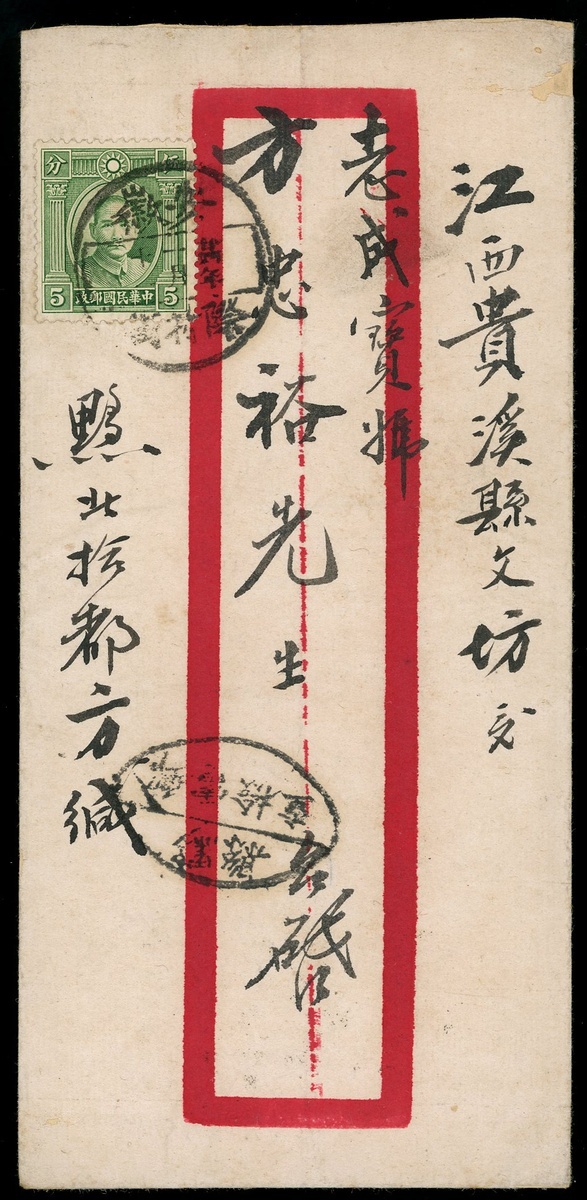 江西貴溪縣文坊交
志成寶號
方忠裕先生 台啓
黟北拾都方緘
分 伍
5 中華民國郵政 5
徽
檢
查